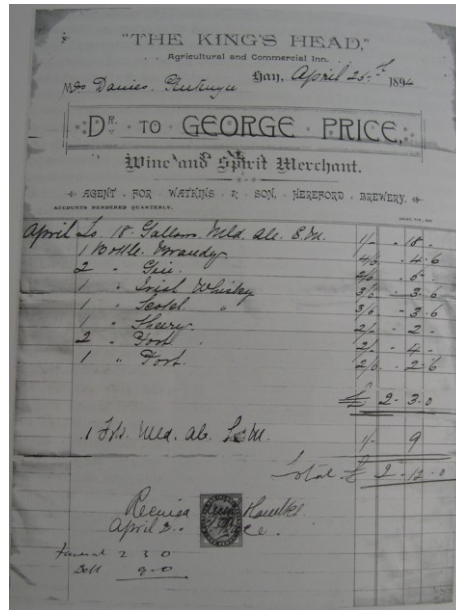 "THE KING'S HEAD,"
Agricultural and Commercial Inn.
Hay, April 1894
Mrs Davies.
DR. TO GEORGE PRICE,
Wine and Spirit Merchant.
AGENT FOR WATKINS & SON, HEREFORD BREWERY.
ACCOUNTS RENDERED QUARTERLY.
April To 18 Gallons Mld. Ale. 1/- - 18 -
1 Bottle Brandy 4/6 - 4 - 6
2 " Gin 2/6 - 5 -
1 " Irish Whisky 3/6 - 3 - 6
1 " Scotch " 3/6 - 3 - 6
1 " Sherry 2/- - 2 -
2 " Port 2/- - 4 -
1 " Port. 2/6 - 2 - 6
£ 2 - 3 - 0
1 Mld. Ale. 1/- 9
Total £ 2 - 12 - 0
Received Thanks
April
Funeral 2 3 0
9 - 0